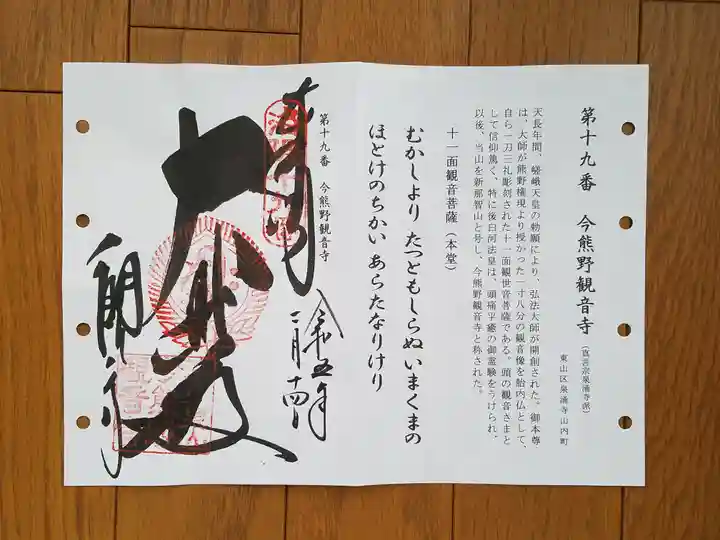 第十九番 今熊野観音寺
(真言宗泉涌寺派)
東山区泉涌寺山内町
天長年間、嵯峨天皇の勅願により、弘法大師が開創された。御本尊
は、大師が熊野権現より授かった一寸八分の観音像を胎内仏として、
自ら一刀三礼彫刻された十一面観世音菩薩である。頭の観音さまと
して信仰篤く、特に後白河法皇は、頭痛平癒の御霊験をうけられ、
以後、当山を新那智山と号し、今熊野観音寺と称された。
十一面観音菩薩(本堂)
むかしより たつともしらぬいまくまの
ほとけのちかい あらたなりけり
第十九番 今熊野観音寺
奉拝
大悲殿
令五年
二月十四日